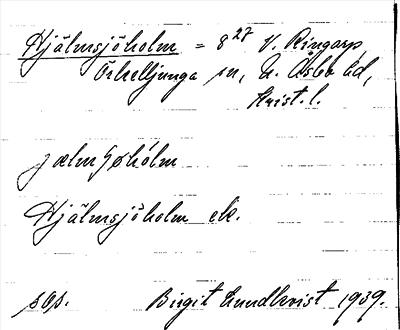 Hjälmsjöholm = 8²⁷ V. Ringarp,
Örkelljunga sn, N. Åsbo hd,
Krist. l.
jælmʃøhólm
Hjälmsjöholm ek.
sop.
Birgit Lundkvist 1939.